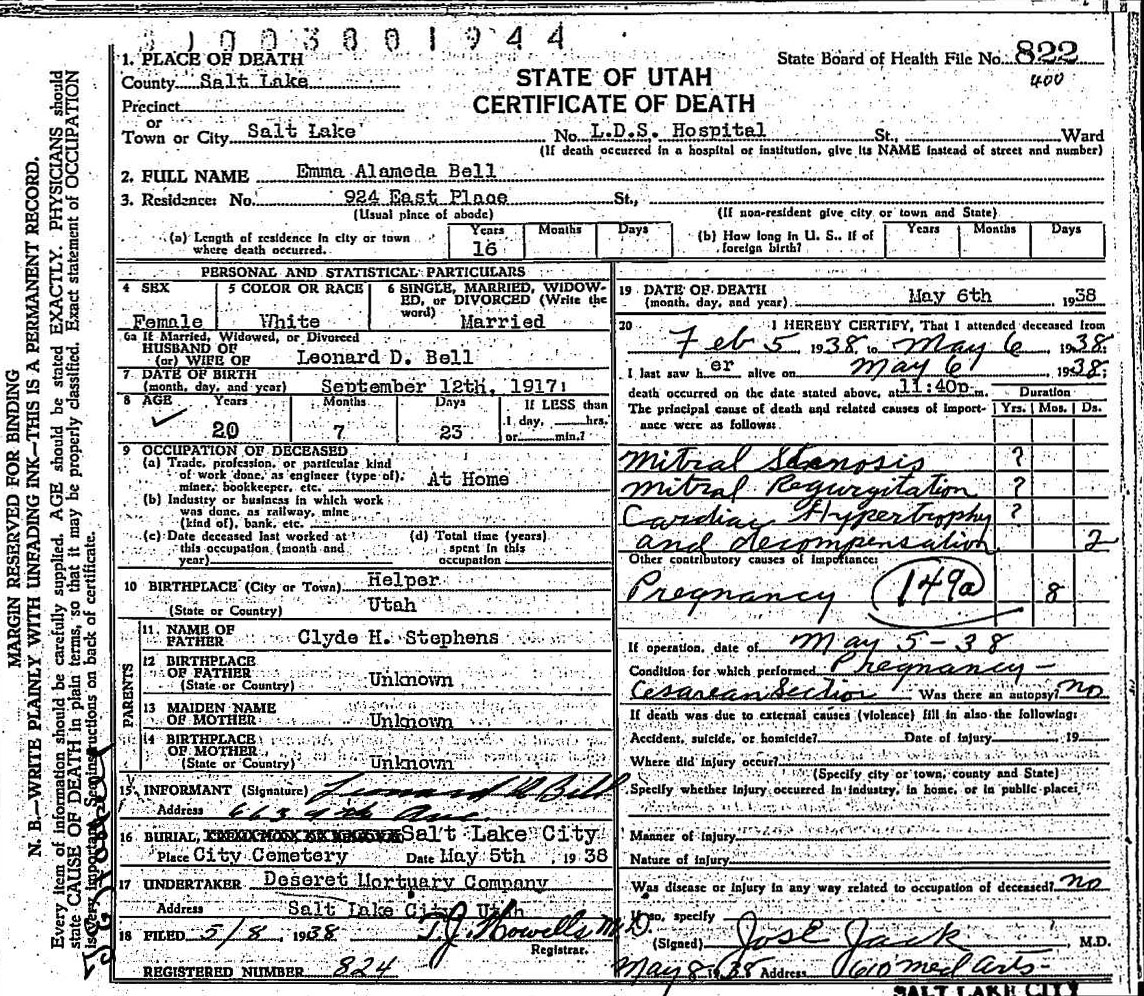 SJ003801944
1. PLACE OF DEATH
State Board of Health File No. 822
400
County Salt Lake
STATE OF UTAH
CERTIFICATE OF DEATH
Precinct
or
Town or City Salt Lake No. L.D.S. Hospital St., Ward
(If death occurred in a hospital or institution, give its NAME instead of street and number)
2. FULL NAME Emma Alameda Bell
3. Residence: No. 924 East Place St.,
(Usual place of abode) (If non-resident give city or town and State)
(a) Length of residence in city or town where death occurred. Years 16 Months Days
(b) How long in U. S., if of foreign birth? Years Months Days
PERSONAL AND STATISTICAL PARTICULARS
4 SEX Female
5 COLOR OR RACE White
6 SINGLE, MARRIED, WIDOWED, or DIVORCED (Write the word) Married
6a If Married, Widowed, or Divorced
HUSBAND OF
(or) WIFE OF Leonard D. Bell
7 DATE OF BIRTH
(month, day, and year) September 12th, 1917
8 AGE Years 20 Months 7 Days 23 If LESS than 1 day, hrs. or min.?
9 OCCUPATION OF DECEASED
(a) Trade, profession, or particular kind
of work done, as engineer (type of),
miner, bookkeeper, etc. At Home
(b) Industry or business in which work
was done, as railway, mine
(kind of), bank, etc.
(c) Date deceased last worked at
this occupation (month and
year)
(d) Total time (years)
spent in this
occupation
10 BIRTHPLACE (City or Town) Helper
(State or Country) Utah
PARENTS
11. NAME OF
FATHER Clyde H. Stephens
12 BIRTHPLACE
OF FATHER
(State or Country) Unknown
13 MAIDEN NAME
OF MOTHER Unknown
14 BIRTHPLACE
OF MOTHER
(State or Country) Unknown
15 INFORMANT (Signature) Leonard D Bell
Address 663 4th Ave.
16 BURIAL, CREMATION, OR REMOVAL Salt Lake City
Place City Cemetery Date May 5th, 1938
17 UNDERTAKER Deseret Mortuary Company
Address Salt Lake City Utah
18 FILED 5/8, 1938 T.J. Howells M.D.
Registrar.
REGISTERED NUMBER 824
19 DATE OF DEATH
(month, day, and year) May 6th, 1938
20 I HEREBY CERTIFY, That I attended deceased from
Feb 5, 1938, to May 6, 1938.
I last saw her alive on May 6, 1938,
death occurred on the date stated above, at 11:40p m.
The principal cause of death and related causes of importance were as follows:
Duration
Yrs. Mos. Ds.
Mitral Stenosis ?
Mitral Regurgitation ?
Cardiac Hypertrophy ?
and decompensation 2
Other contributory causes of importance:
Pregnancy 149a 8
If operation, date of May 5-38
Condition for which performed Pregnancy -
Cesarean Section Was there an autopsy? no
If death was due to external causes (violence) fill in also the following:
Accident, suicide, or homicide? Date of injury 19
Where did injury occur?
(Specify city or town, county and State)
Specify whether injury occurred in industry, in home, or in public place:
Manner of injury
Nature of injury
Was disease or injury in any way related to occupation of deceased? no
If so, specify
(Signed) Jos E Jack M.D.
May 8 1938 Address 610 Med Arts-
SALT LAKE CITY
MARGIN RESERVED FOR BINDING
N. B.—WRITE PLAINLY WITH UNFADING INK—THIS IS A PERMANENT RECORD.
Every item of information should be carefully supplied. AGE should be stated EXACTLY. PHYSICIANS should
state CAUSE OF DEATH in plain terms, so that it may be properly classified. Exact statement of OCCUPATION
is very important. See instructions on back of certificate.